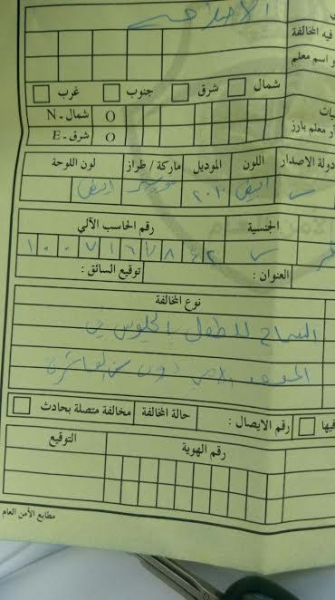 فيه المخالفة
و اسم معلم
شمال شرق جنوب غرب
شمال - N O
شرق - E O
دولة الاصدار اللون الموديل ماركة / طراز لون اللوحة
ابيض ٢٠١٠ ابيض
الجنسية رقم الحاسب الآلي
العنوان : توقيع السائق :
نوع المخالفة
السماح للطفل بالجلوس في
المقعد الامامي دون سن العاشرة
فيها رقم الايصال : حالة المخالفة مخالفة متصلة بحادث
رقم الهوية التوقيع
مطابع الأمن العام